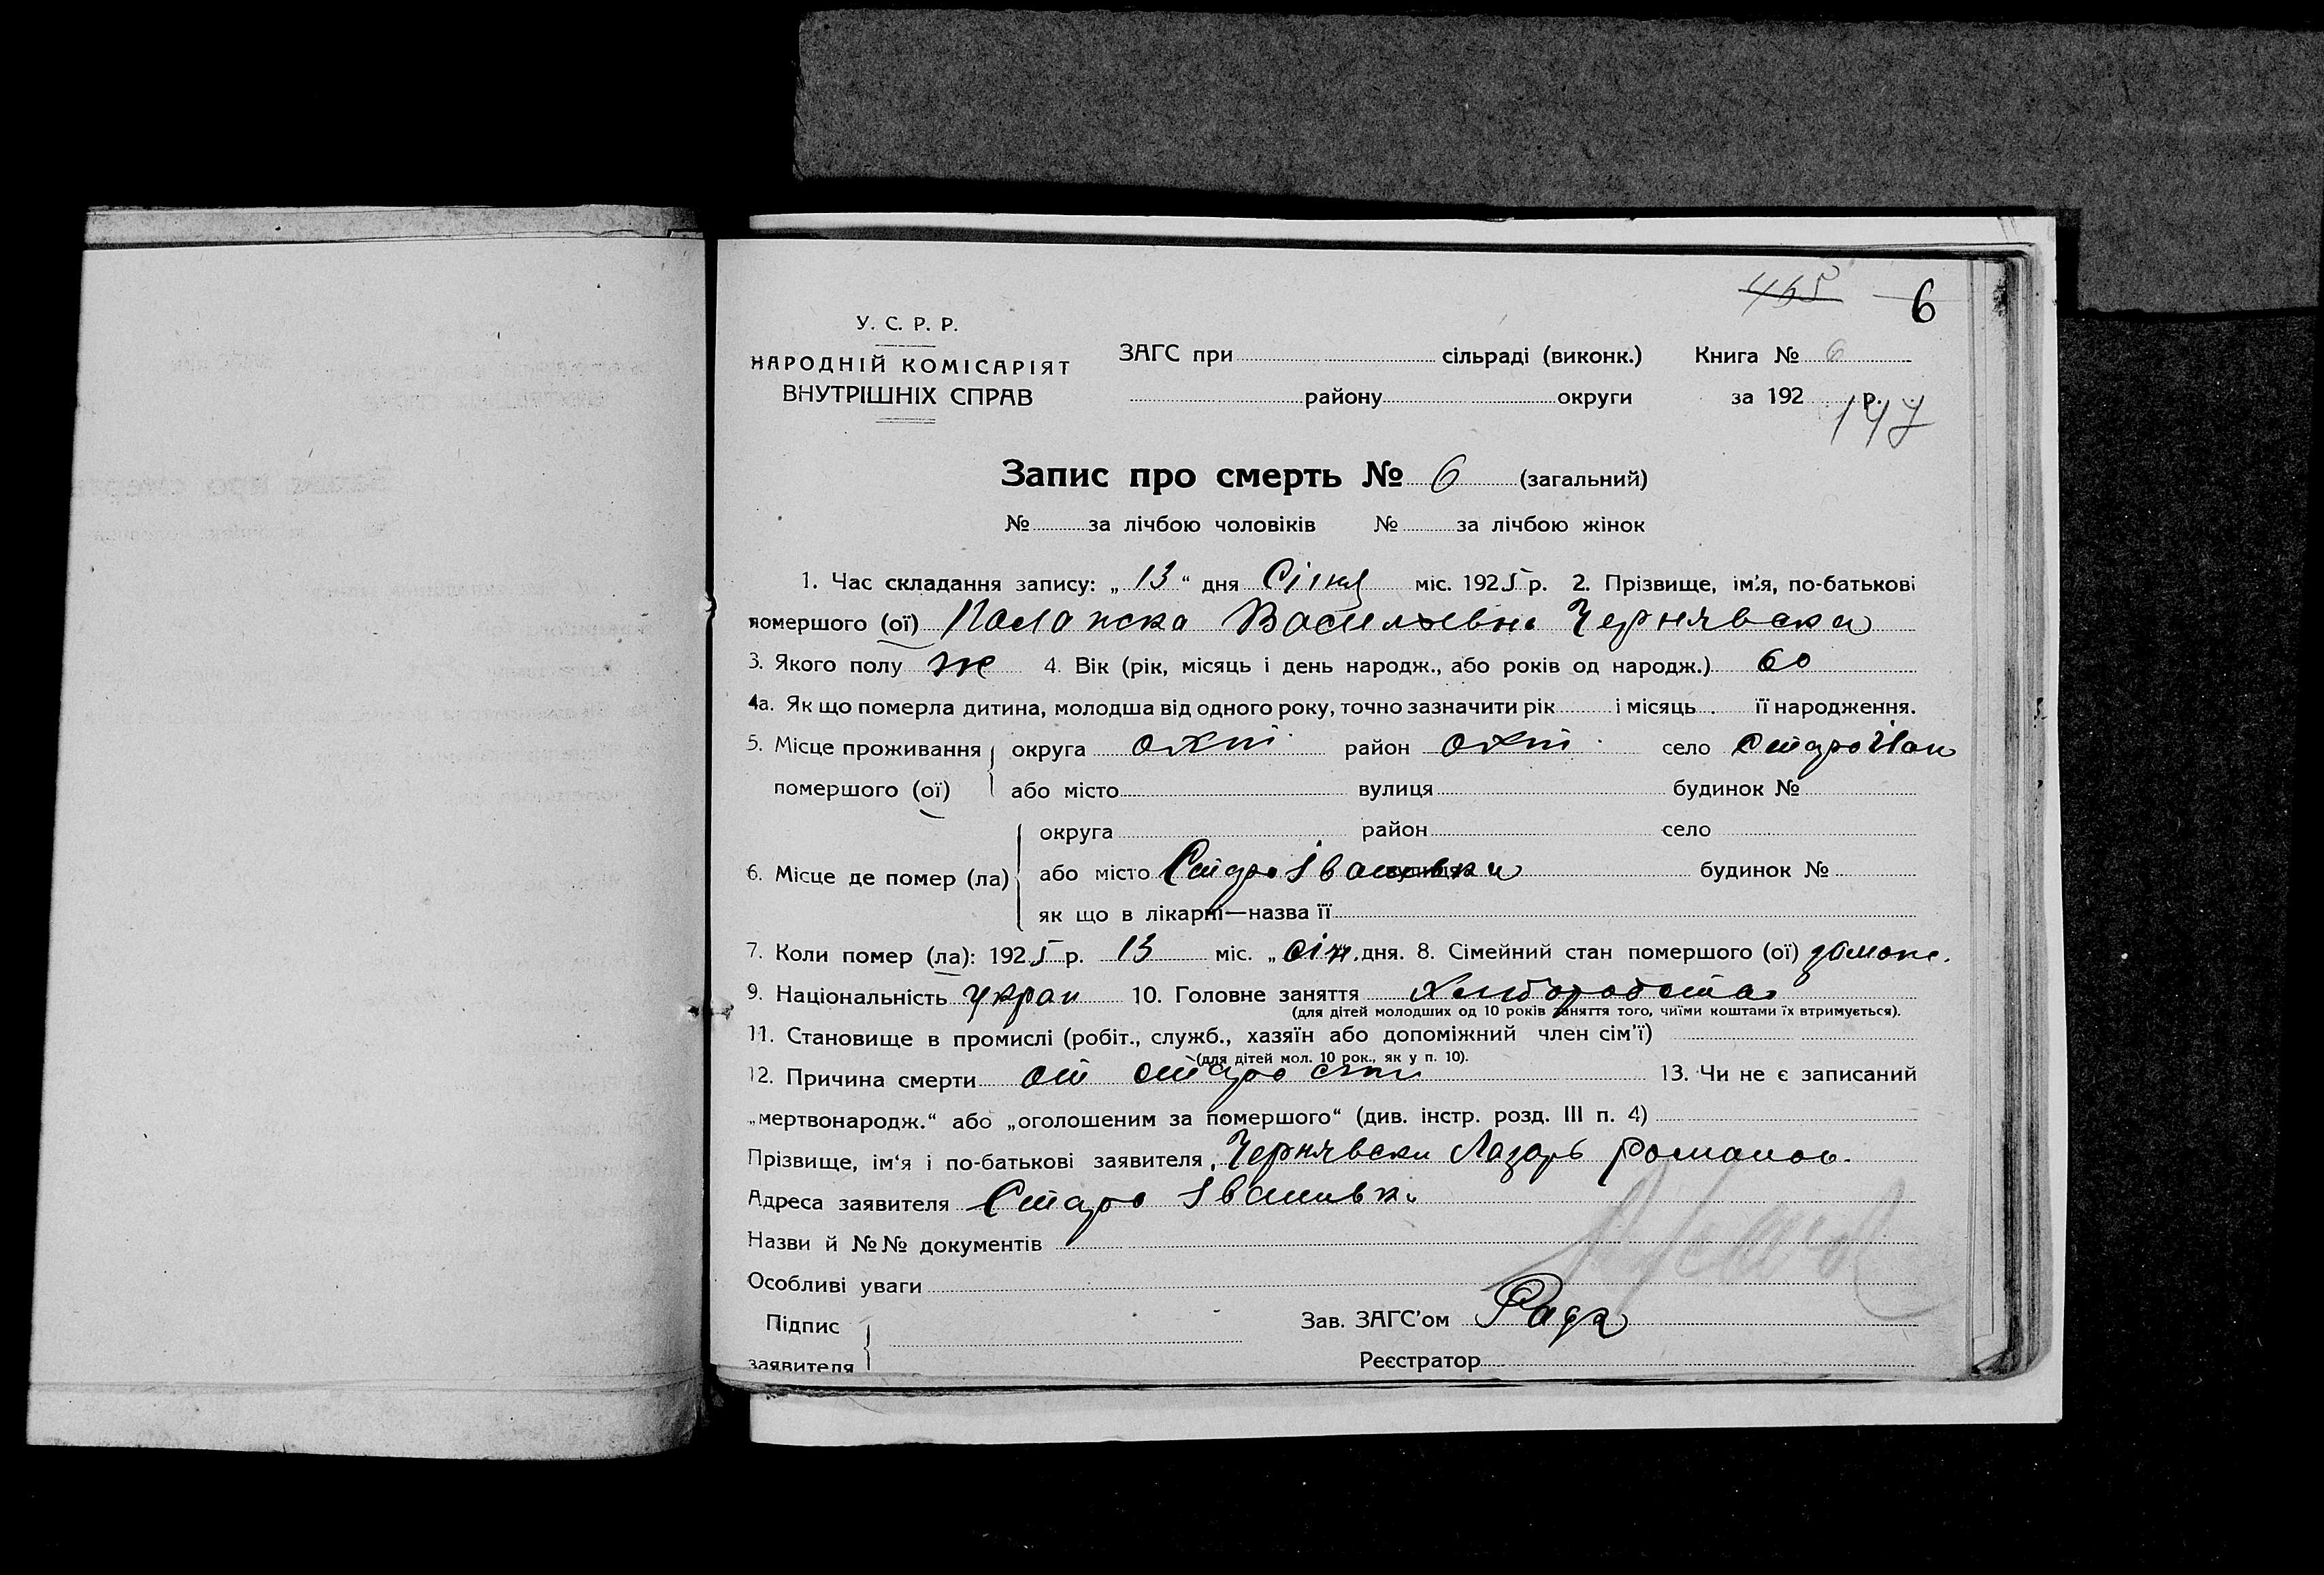 465 6
У. С. Р. Р.
НАРОДНІЙ КОМІСАРІЯТ
ВНУТРІШНІХ СПРАВ
ЗАГС при сільраді (виконк.) Книга № 6
району округи за 192 р.
147
Запис про смерть № 6 (загальний)
№ за лічбою чоловіків № за лічбою жінок
1. Час складання запису: „ 13 “ дня Січня міс. 1925 р. 2. Прізвище, ім'я, по-батькові
помершого (ої) Васильевна Чернявска
3. Якого полу ж 4. Вік (рік, місяць і день народж., або років од народж.) 60
4а. Як що померла дитина, молодша від одного року, точно зазначити рік і місяць її народження.
5. Місце проживання округа район село Старо Иван
помершого (ої) або місто вулиця будинок №
округа район село
6. Місце де помер (ла) або місто Старо Івановка вулиця будинок №
як що в лікарні—назва її
7. Коли помер (ла): 1925 р. 13 міс. „ січ. дня. 8. Сімейний стан помершого (ої) замож.
9. Національність украи 10. Головне заняття
(для дітей молодших од 10 років заняття того, чиїми коштами їх втримується).
11. Становище в промислі (робіт., служб., хазяїн або допоміжний член сім'ї)
(для дітей мол. 10 рок., як у п. 10).
12. Причина смерти от старости 13. Чи не є записаний
„мертвонародж.“ або „оголошеним за помершого“ (див. інстр. розд. III п. 4)
Прізвище, ім'я і по-батькові заявителя Чернявски Лазарь Романов.
Адреса заявителя Старо Івановка
Назви й №№ документів
Особливі уваги
Підпис
заявителя
Зав. ЗАГС'ом
Реєстратор